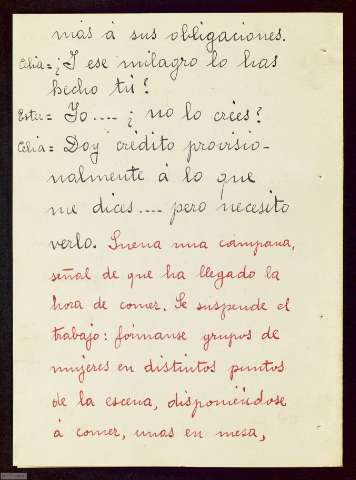 más á sus obligaciones.
Celia = ¿Y ese milagro lo has
hecho tú?
Ester = Yo.... ¿no lo crées?
Celia = Doy crédito provisio-
nalmente á lo que
me dices.... pero necesito
verlo. Suena una campana,
señal de que ha llegado la
hora de comer. Se suspende el
trabajo: fórmanse grupos de
mujeres en distintos puntos
de la escena, disponiéndose
á comer, unas en mesa,